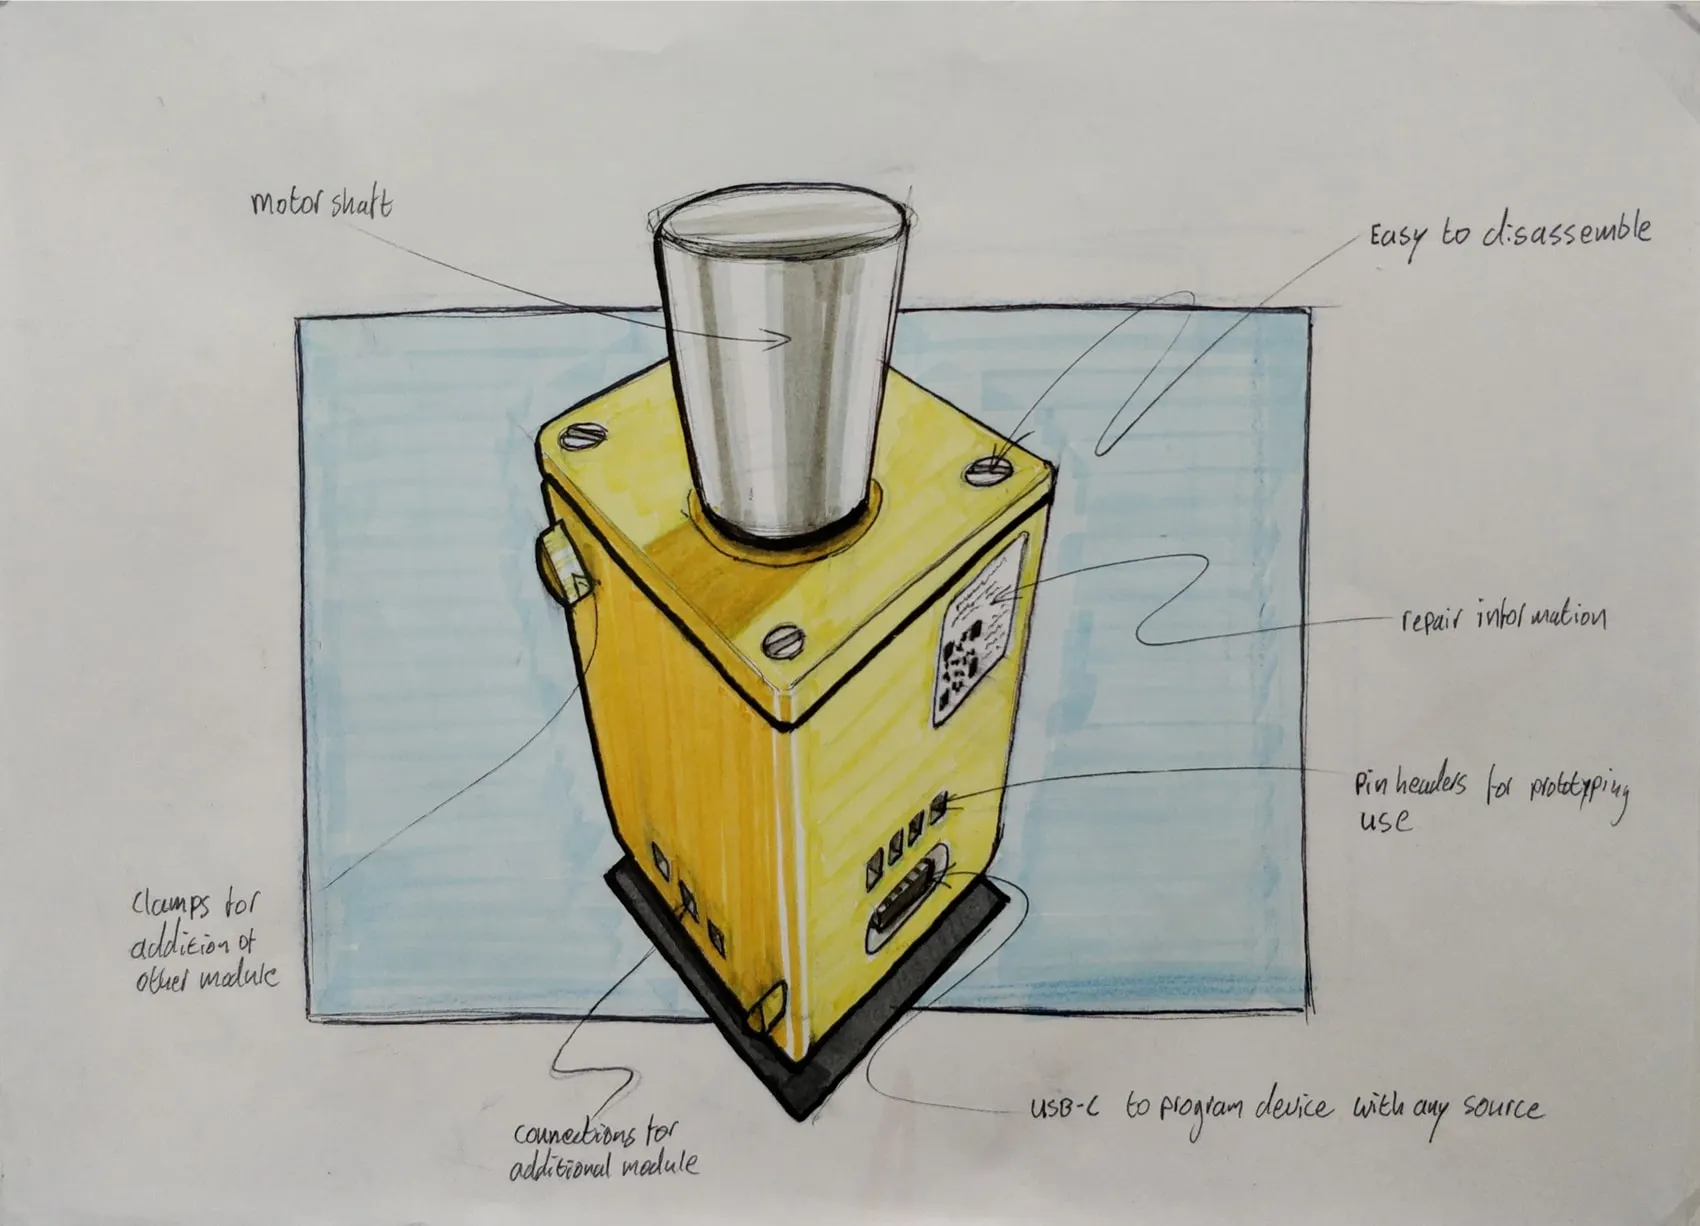 motor shaft
Easy to disassemble
repair information
Pin headers for prototyping
use
Clamps for
addition of
other module
connections for
additional module
USB-C to program device with any source